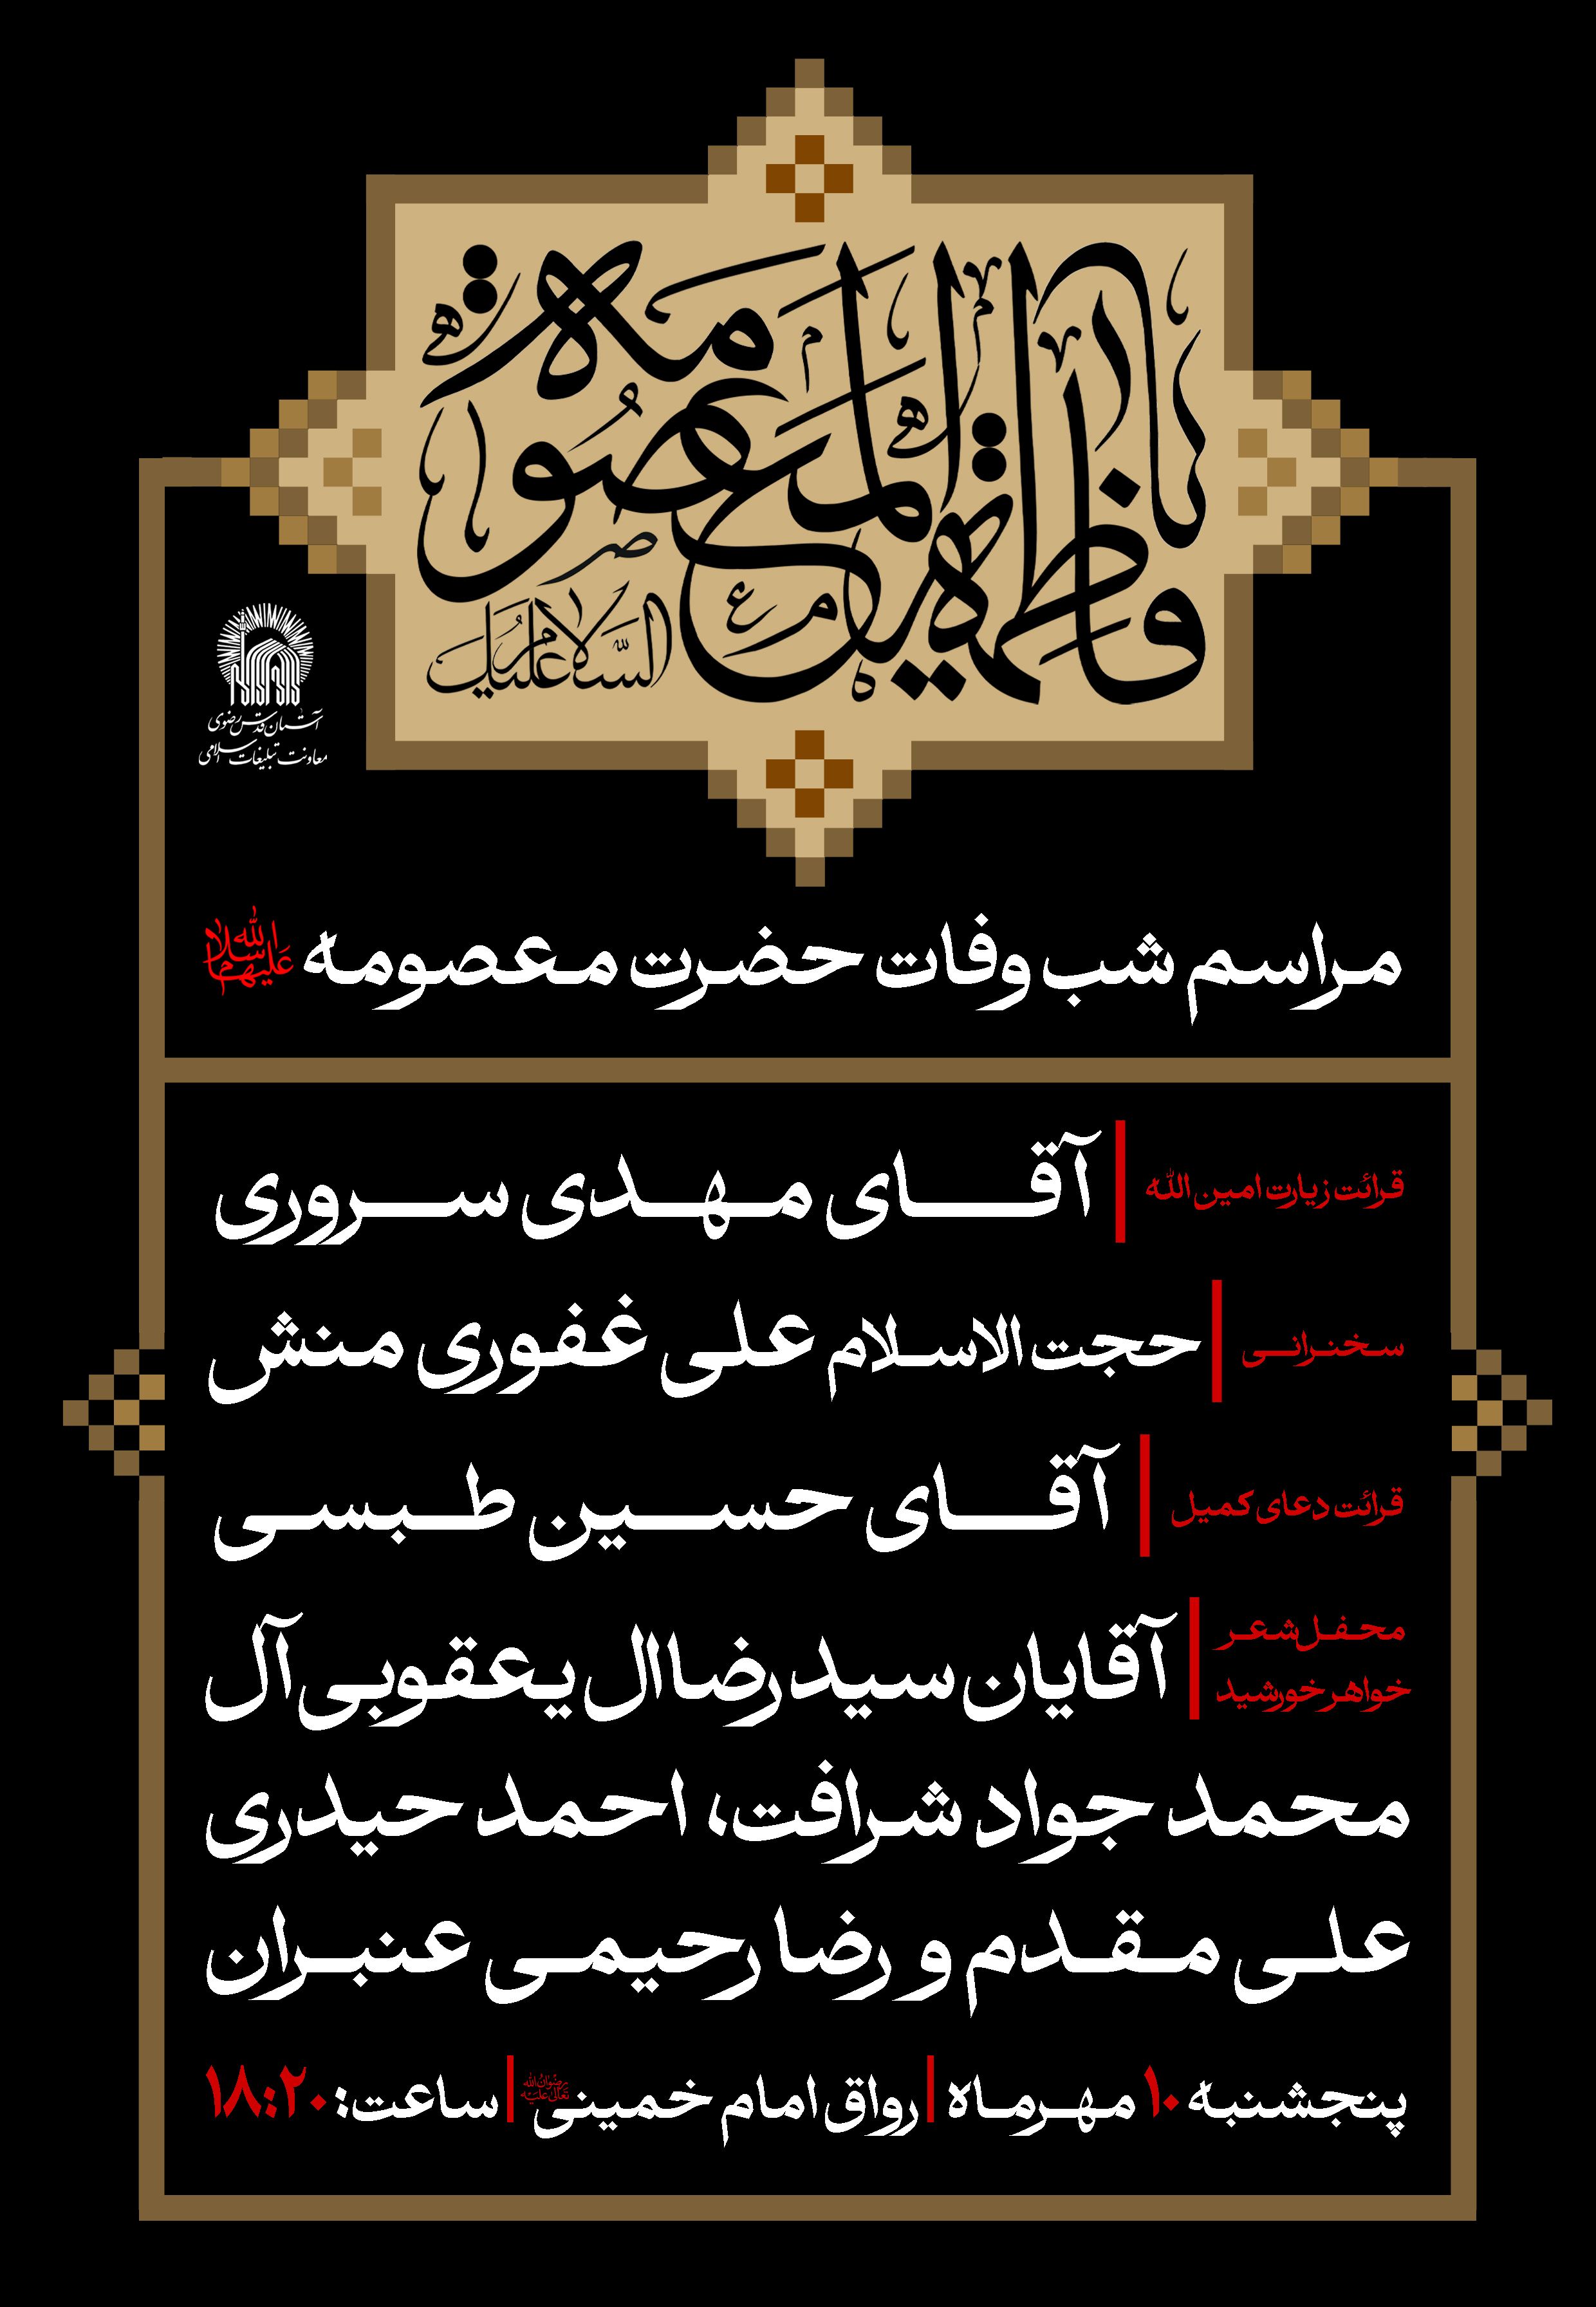 یا فاطمة المعصومة
السلام علیک
آستان قدس رضوی
معاونت تبلیغات اسلامی
مراسم شب وفات حضرت معصومه سلام الله علیها
قرائت زیارت امین الله | آقای مهدی سروری
سخنرانی | حجت الاسلام علی غفوری منش
قرائت دعای کمیل | آقای حسین طبسی
محفل شعر خواهر خورشید | آقایان سیدرضا ال یعقوبی آل
محمد جواد شرافت، احمد حیدری
علی مقدم و رضا رحیمی عنبران
پنجشنبه ۱۰ مهرماه | رواق امام خمینی رضوان الله تعالی علیه | ساعت: ۱۸:۲۰